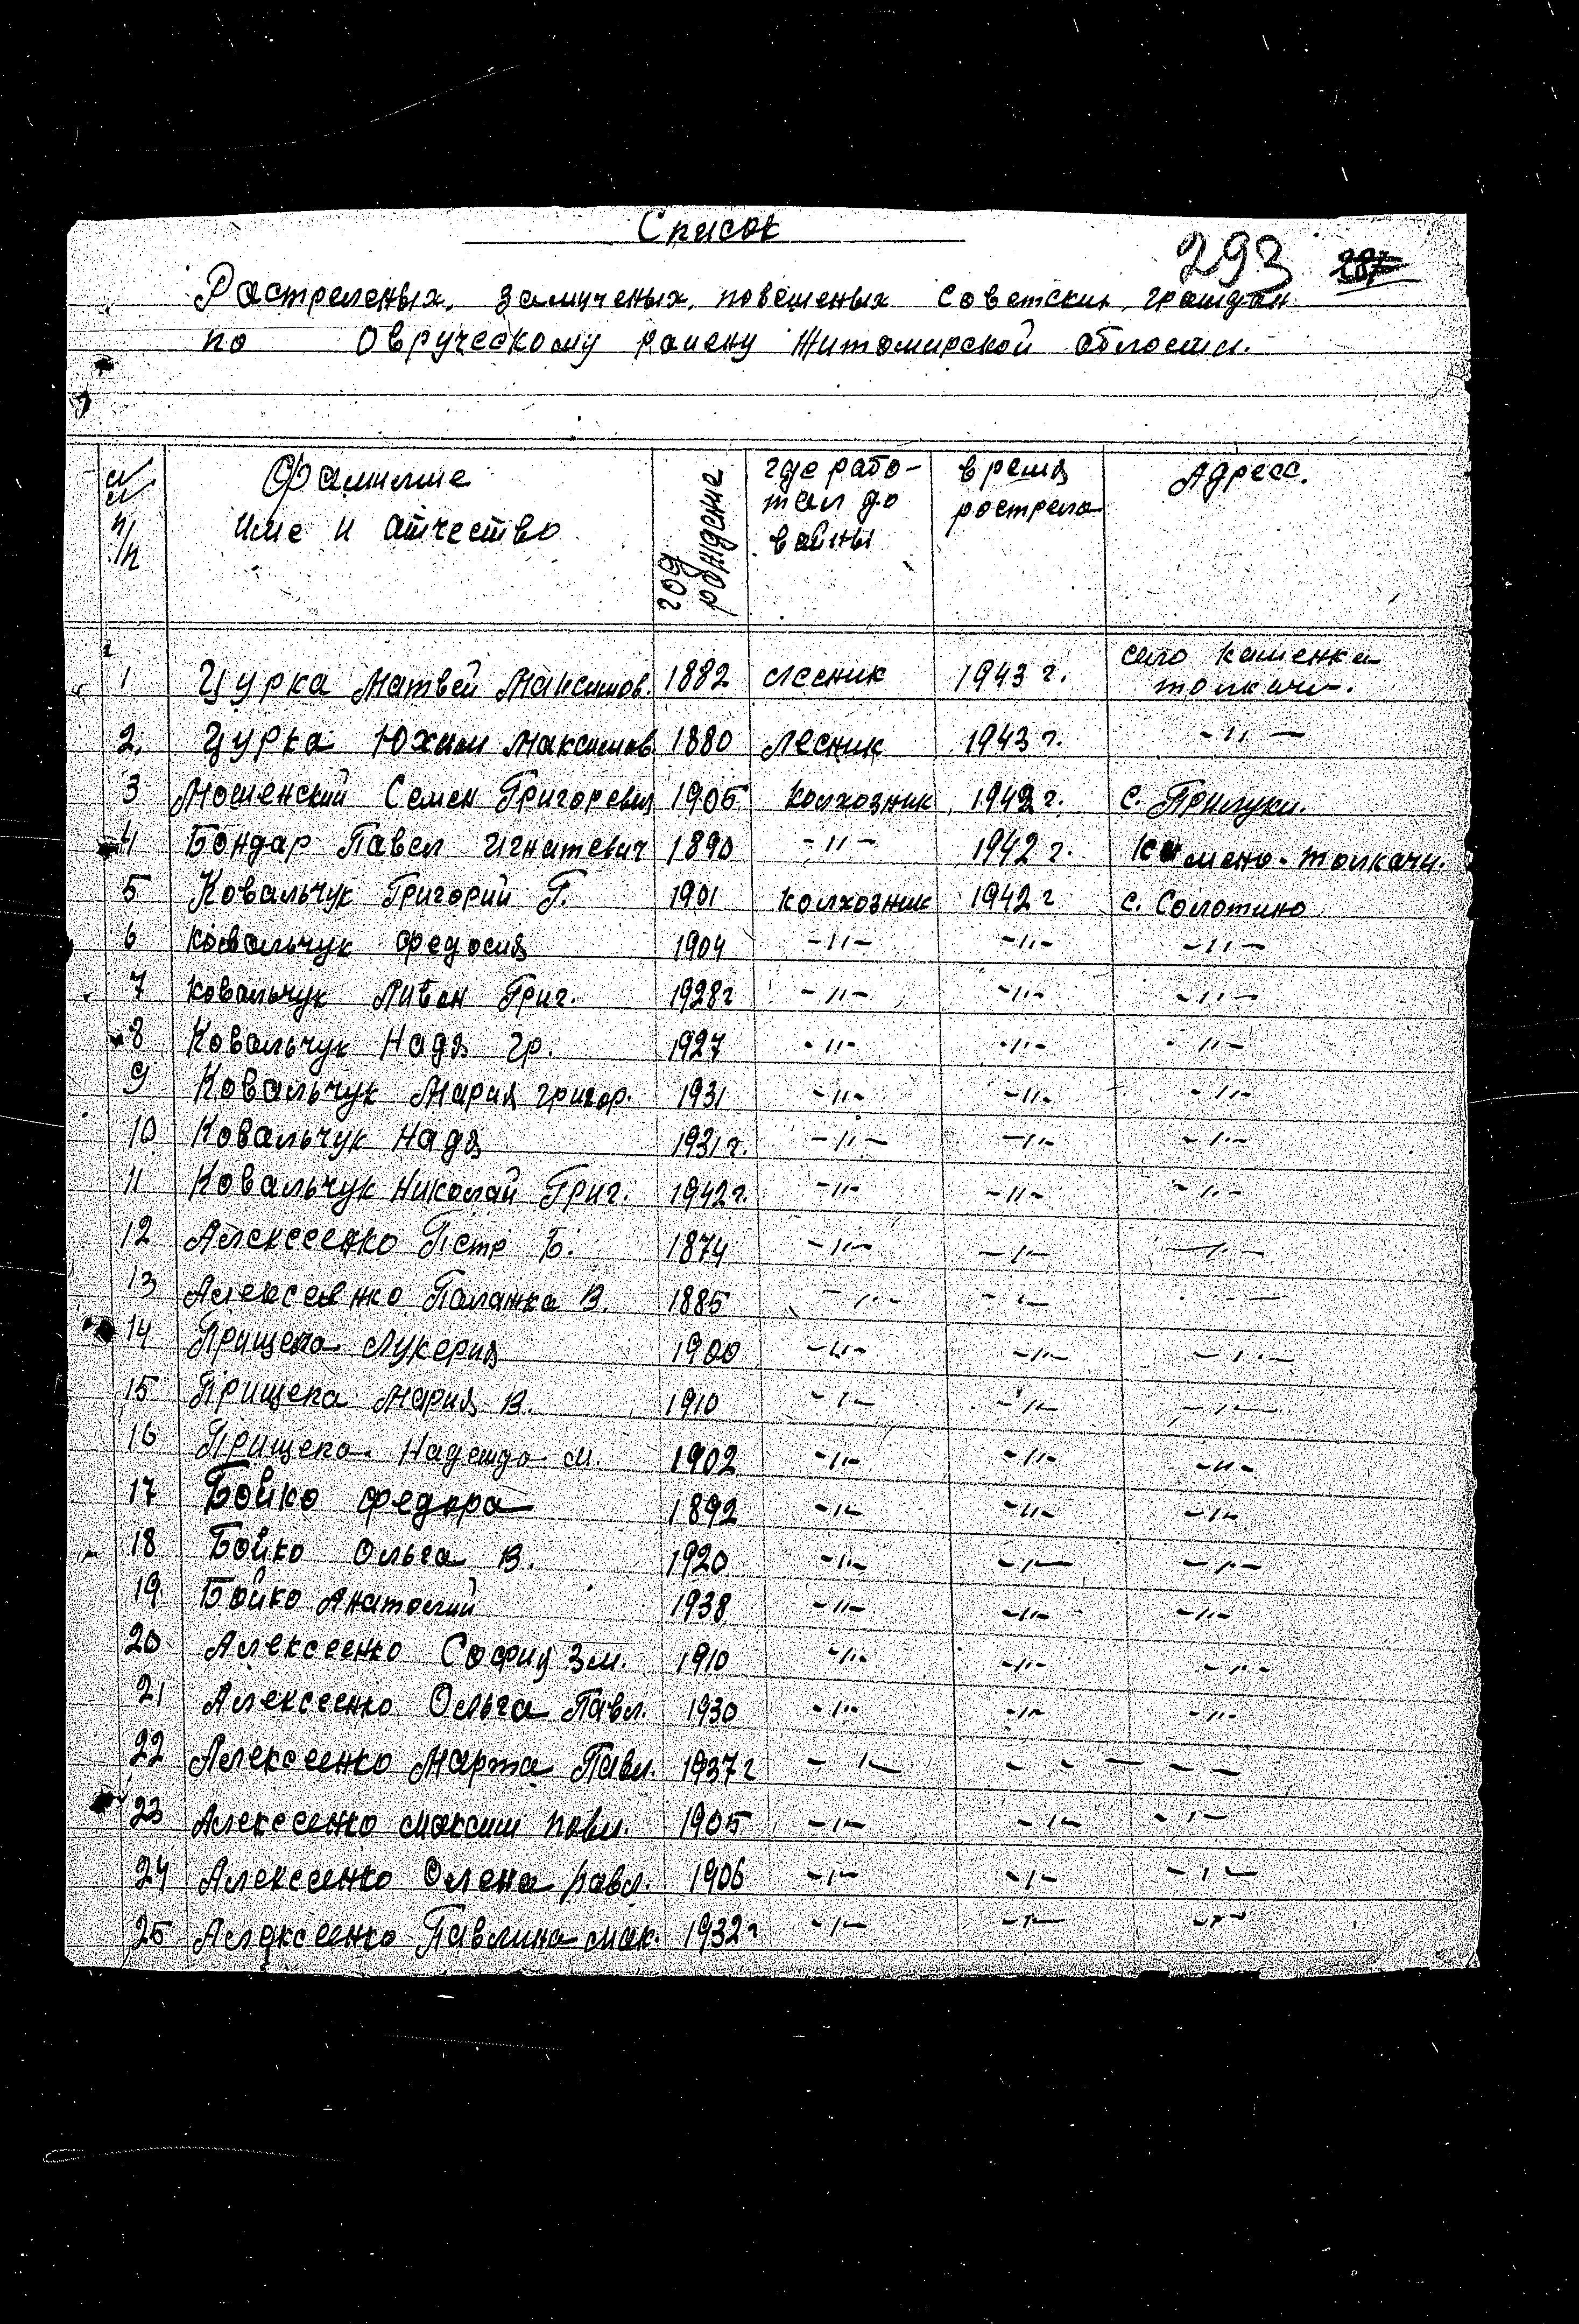 Список
293 287
Растреленых, замученых, повешеных Советских граждан
по Овруческому раиену Житомирской области.
№№ п/п Фамилие Име и атчество год рождение где работал до вайны время растрела Адресс.
1 Цурка Матвей Максимов. 1882 лесник 1943 г. село каменка толкачи.
2. Цурка Юхим Максимов 1880 лесник 1943 г. -"-
3 Мошенский Семен Григоревич 1905 колхозник 1942 г. с. Прилуки.
4 Бондар Павел Игнатевич 1890 -"- 1942 г. Камено-толкачи.
5 Ковальчук Григорий Г. 1901 колхозник 1942 г с. Солотино
6 Ковальчук Федосия 1904 -"- -"- -"-
7 Ковальчук Ливон Григ. 1928 г -"- -"- -"-
8 Ковальчук Надя гр. 1927 -"- -"- -"-
9 Ковальчук Мария григор. 1931 -"- -"- -"-
10 Ковальчук Надя 1931 г. -"- -"- -"-
11 Ковальчук Николай Григ. 1942 г. -"- -"- -"-
12 Алексеенко Петр Б. 1874 -"- -"- -"-
13 Алексеенко Палажка В. 1885 -"- -"- -"-
14 Прищепа Лукерия 1900 -"- -"- -"-
15 Прищепа Мария В. 1910 -"- -"- -"-
16 Прищепа Надежда М. 1902 -"- -"- -"-
17 Бойко Федора 1892 -"- -"- -"-
18 Бойко Ольга В. 1920 -"- -"- -"-
19 Бойко Анатолий 1938 -"- -"- -"-
20 Алексеенко София Зм. 1910 -"- -"- -"-
21 Алексеенко Ольга Павл. 1930 -"- -"- -"-
22 Алексеенко Марта Павл. 1937 г -"- -"- -"-
23 Алексеенко Максим павл. 1905 -"- -"- -"-
24 Алексеенко Олена павл. 1906 -"- -"- -"-
25 Алексеенко Павлина Мак. 1932 г -"- -"- -"-